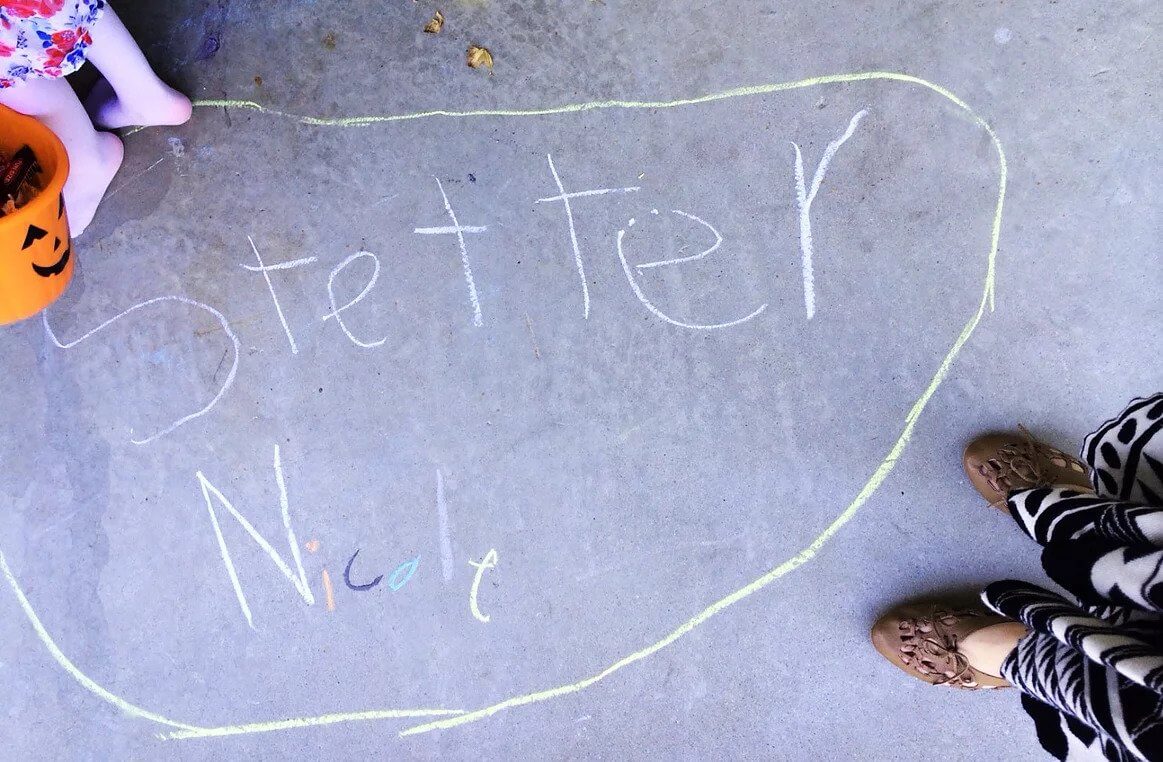 Stetter
Nicole